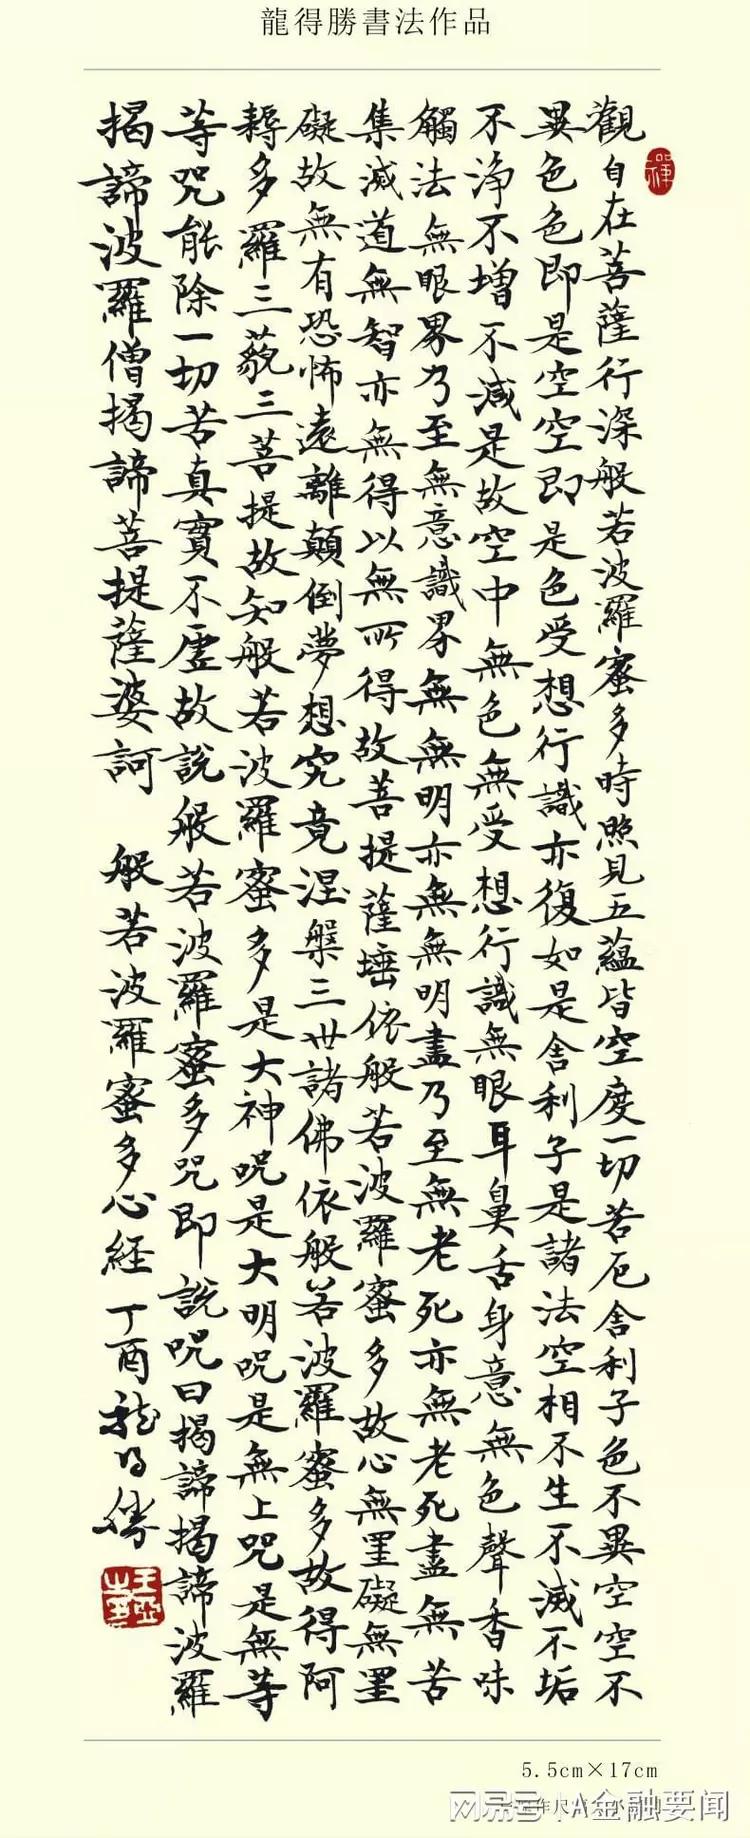 龍得勝書法作品
禪
觀自在菩薩行深般若波羅蜜多時照見五蘊皆空度一切苦厄舍利子色不異空空不
異色色即是空空即是色受想行識亦復如是舍利子是諸法空相不生不滅不垢
不淨不增不減是故空中無色無受想行識無眼耳鼻舌身意無色聲香味
觸法無眼界乃至無意識界無無明亦無無明盡乃至無老死亦無老死盡無苦
集滅道無智亦無得以無所得故菩提薩埵依般若波羅蜜多故心無罣礙無罣
礙故無有恐怖遠離顛倒夢想究竟涅槃三世諸佛依般若波羅蜜多故得阿
耨多羅三藐三菩提故知般若波羅蜜多是大神呪是大明呪是無上呪是無等
等呪能除一切苦真實不虛故說般若波羅蜜多呪即說呪曰揭諦揭諦波羅
揭諦波羅僧揭諦菩提薩婆訶 般若波羅蜜多心經 丁酉龍得勝
5.5cm×17cm
网易号 | A金融要闻